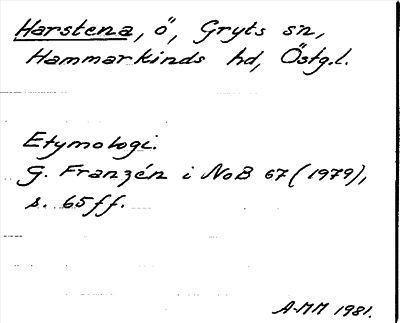 Harstena, ö, Gryts sn,
Hammarkinds hd, Östg.l.
Etymologi.
G. Franzén i NoB 67 (1979),
s. 65ff.
A-MM 1981.